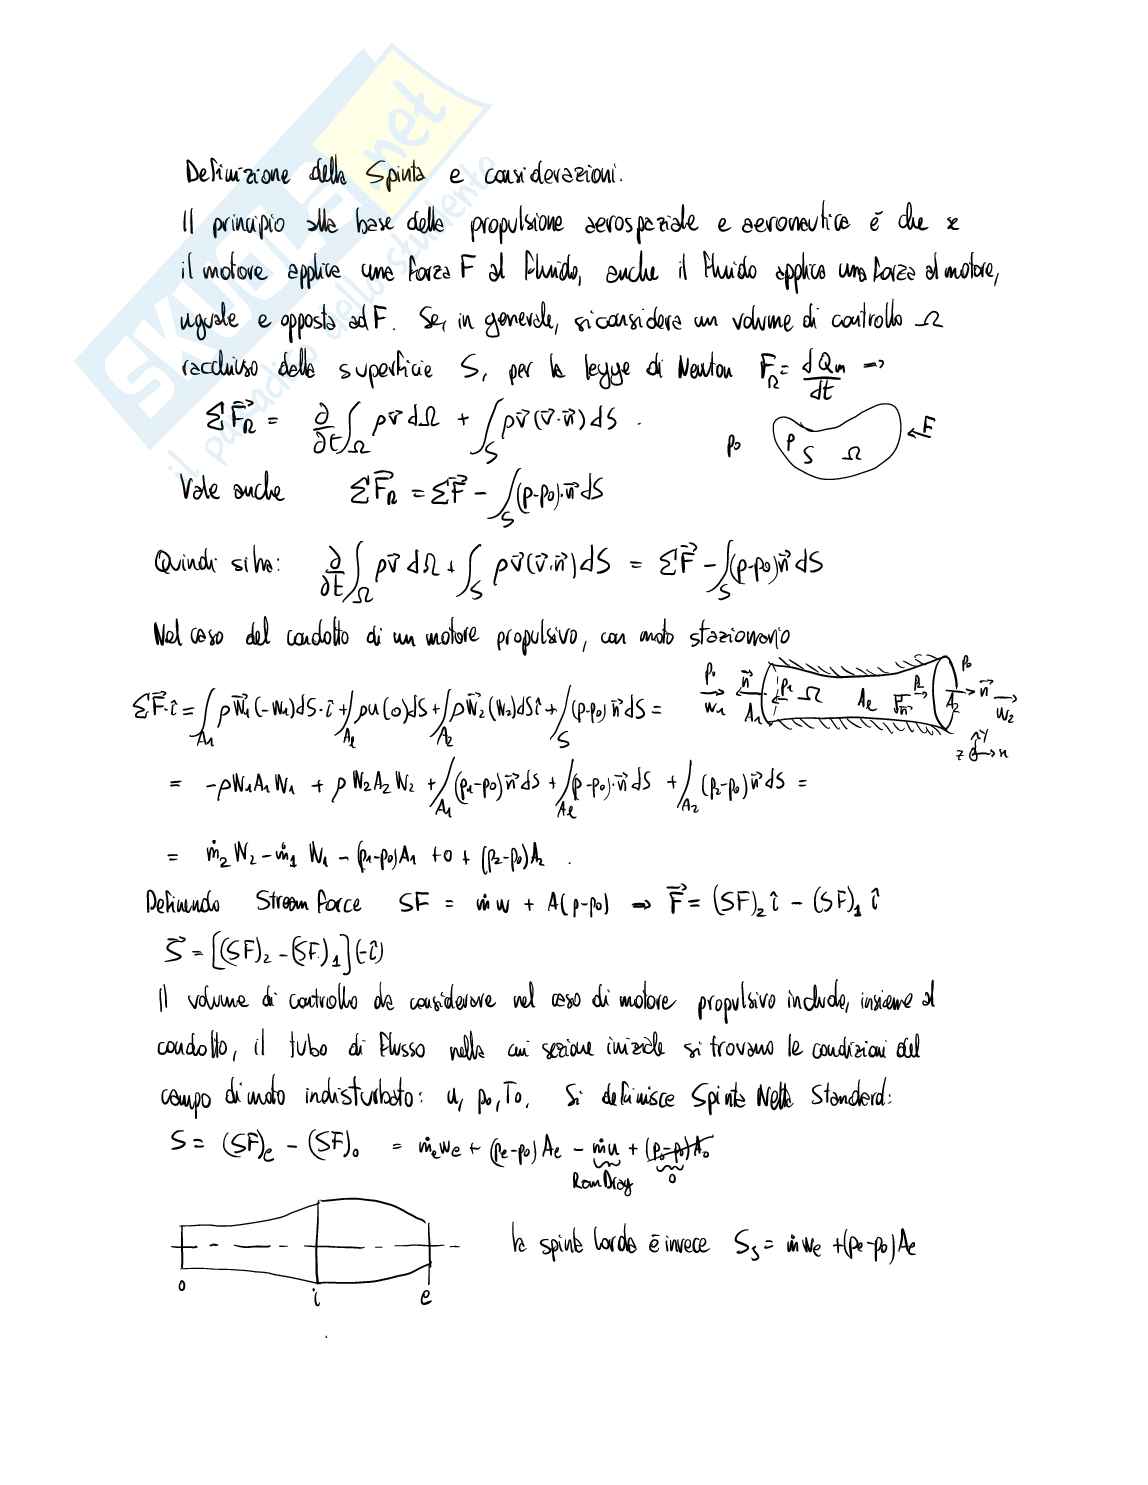 SKUOLA.net
il paradiso dello studente
Definizione della Spinta e considerazioni.
Il principio alla base della propulsione aerospaziale e aeronautica è che se
il motore applica una forza F al fluido, anche il fluido applica una forza al motore,
uguale e opposta ad F. Se, in generale, si considera un volume di controllo Ω
racchiuso dalla superficie S, per la legge di Newton F_Ω = dQm/dt =>
ΣF⃗_Ω = ∂/∂t ∫_Ω ρv⃗ dΩ + ∫_S ρv⃗(v⃗·n⃗)dS .
p0 p S Ω F
Vale anche ΣF⃗_Ω = ΣF⃗ - ∫_S (p-p0)·n⃗ dS
Quindi si ha: ∂/∂t ∫_Ω ρv⃗ dΩ + ∫_S ρv⃗(v⃗·n⃗)dS = ΣF⃗ - ∫_S (p-p0)n⃗ dS
Nel caso del condotto di un motore propulsivo, con moto stazionario
ΣF⃗·î = ∫_A1 ρw⃗1(-w1)dS·î + ∫_Aℓ ρu(0)dS + ∫_A2 ρw⃗2(w2)dS î + ∫_S (p-p0)n⃗ dS =
w1 n⃗ A1 p1 Ω Aℓ n⃗ p2 A2 p0 n⃗ w2
z y x
= -ρw1A1w1 + ρw2A2w2 + ∫_A1 (p1-p0)n⃗ dS + ∫_Aℓ (p-p0)·n⃗ dS + ∫_A2 (p2-p0)n⃗ dS =
= ṁ2 w2 - ṁ1 w1 - (p1-p0)A1 + 0 + (p2-p0)A2 .
Definendo Stream force SF = ṁw + A(p-p0) => F⃗ = (SF)2 î - (SF)1 î
S⃗ = [(SF)2 - (SF)1](-î)
Il volume di controllo da considerare nel caso di motore propulsivo include, insieme al
condotto, il tubo di flusso nella cui sezione iniziale si trovano le condizioni del
campo di moto indisturbato: u, p0, T0. Si definisce Spinta Netta Standard:
S = (SF)e - (SF)0 = ṁe we + (pe-p0)Ae - ṁu + (p0-p0)A0
Ram Drag 0
la spinta lorda è invece Ss = ṁwe + (pe-p0)Ae
0 i e